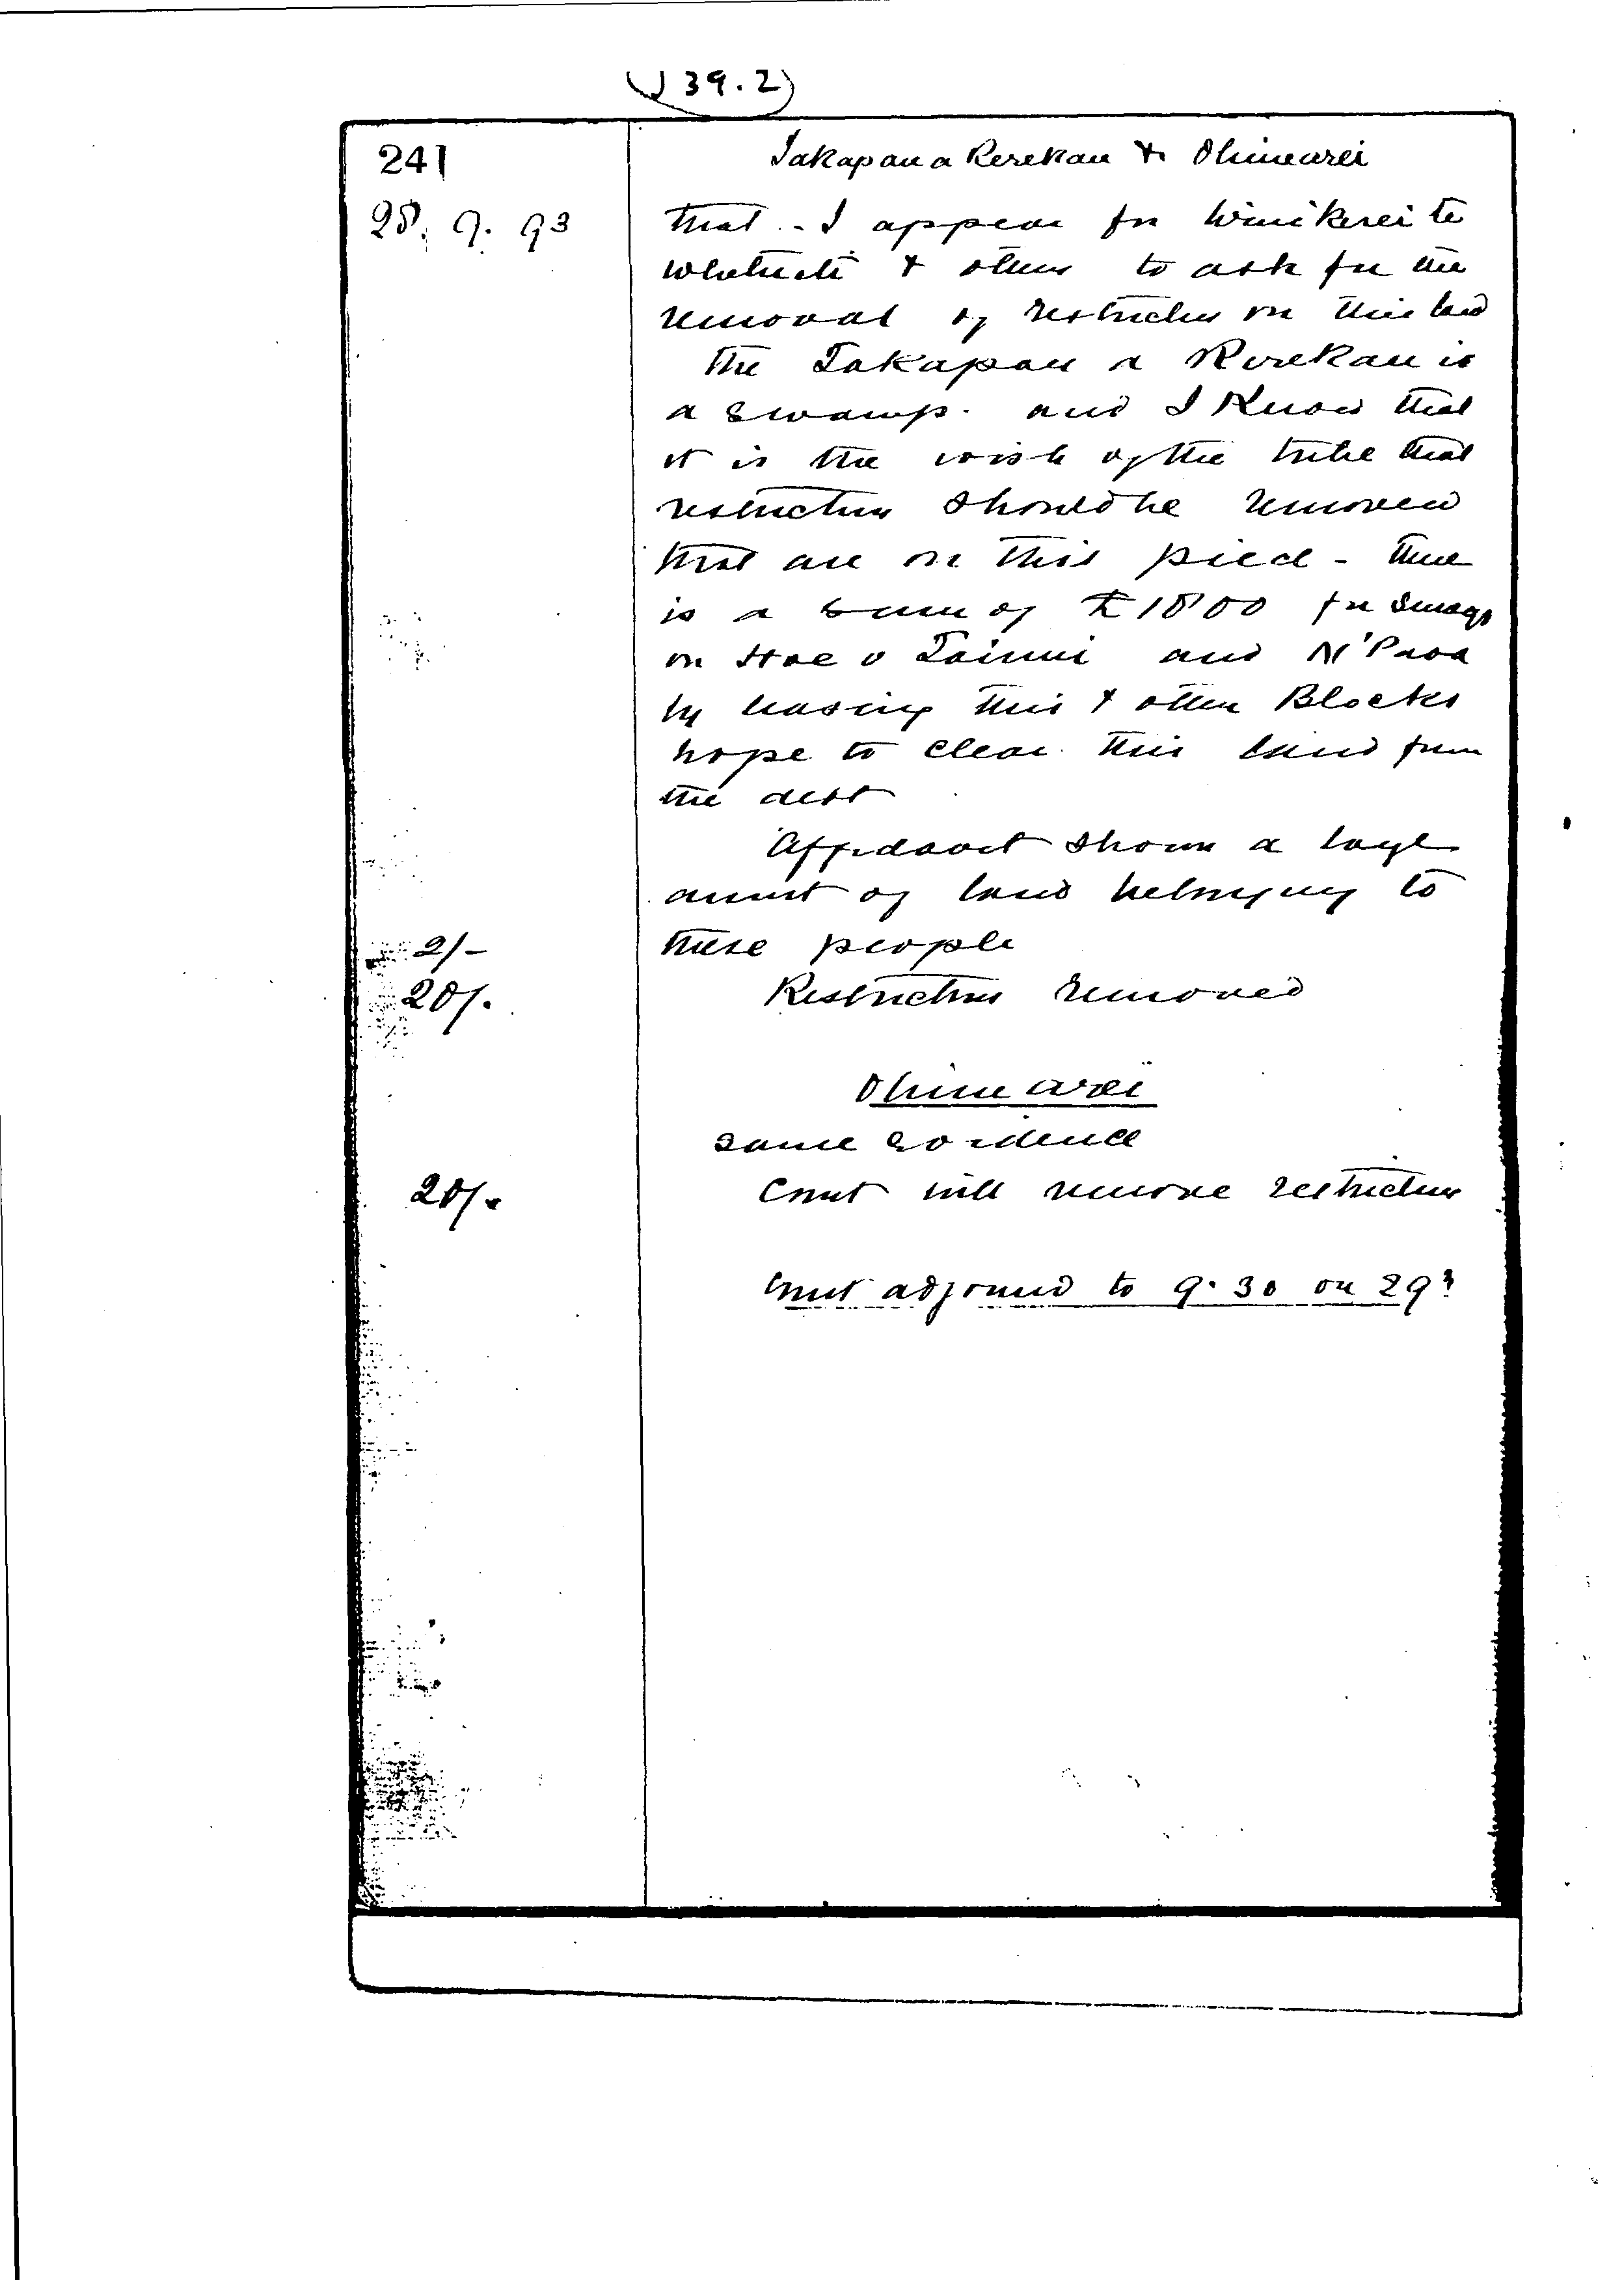 J 39.2
241
Takapau a Rerekau & Ohinewrei
28. 9. 93
that - I appear for Winikerei te
Whetuiti & others to ask for the
removal of restriction on this land
The Takapau a Rerekau is
a swamp. and I know that
it is the wish of the tribe that
restrictions should be removed
that are on this piece - there
is a sum of £1800 for
on Hoe o Tainui and N'Paoa
by leasing this & other Blocks
hope to clear this land from
the debt
Affidavit shown a large
amount of land belonging to
2/-
these people
20/.
Restrictions removed
Ohinewrei
same evidence
20/.
Court will remove restrictions
Court adjourned to 9.30 on 29th